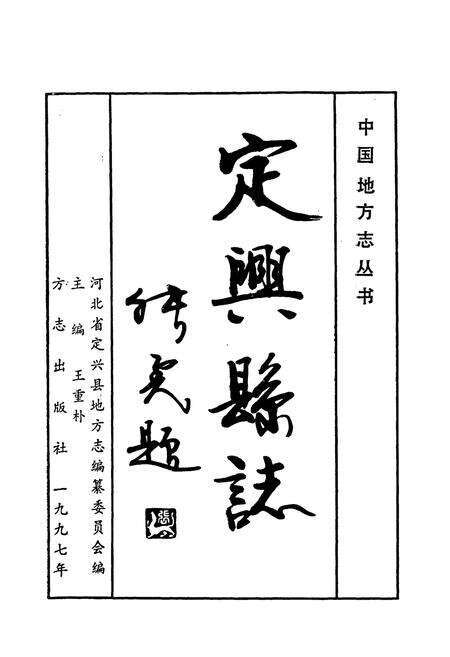 中国地方志丛书
定興縣誌
題
河北省定兴县地方志编纂委员会编
主编 王重朴
方志出版社 一九九七年